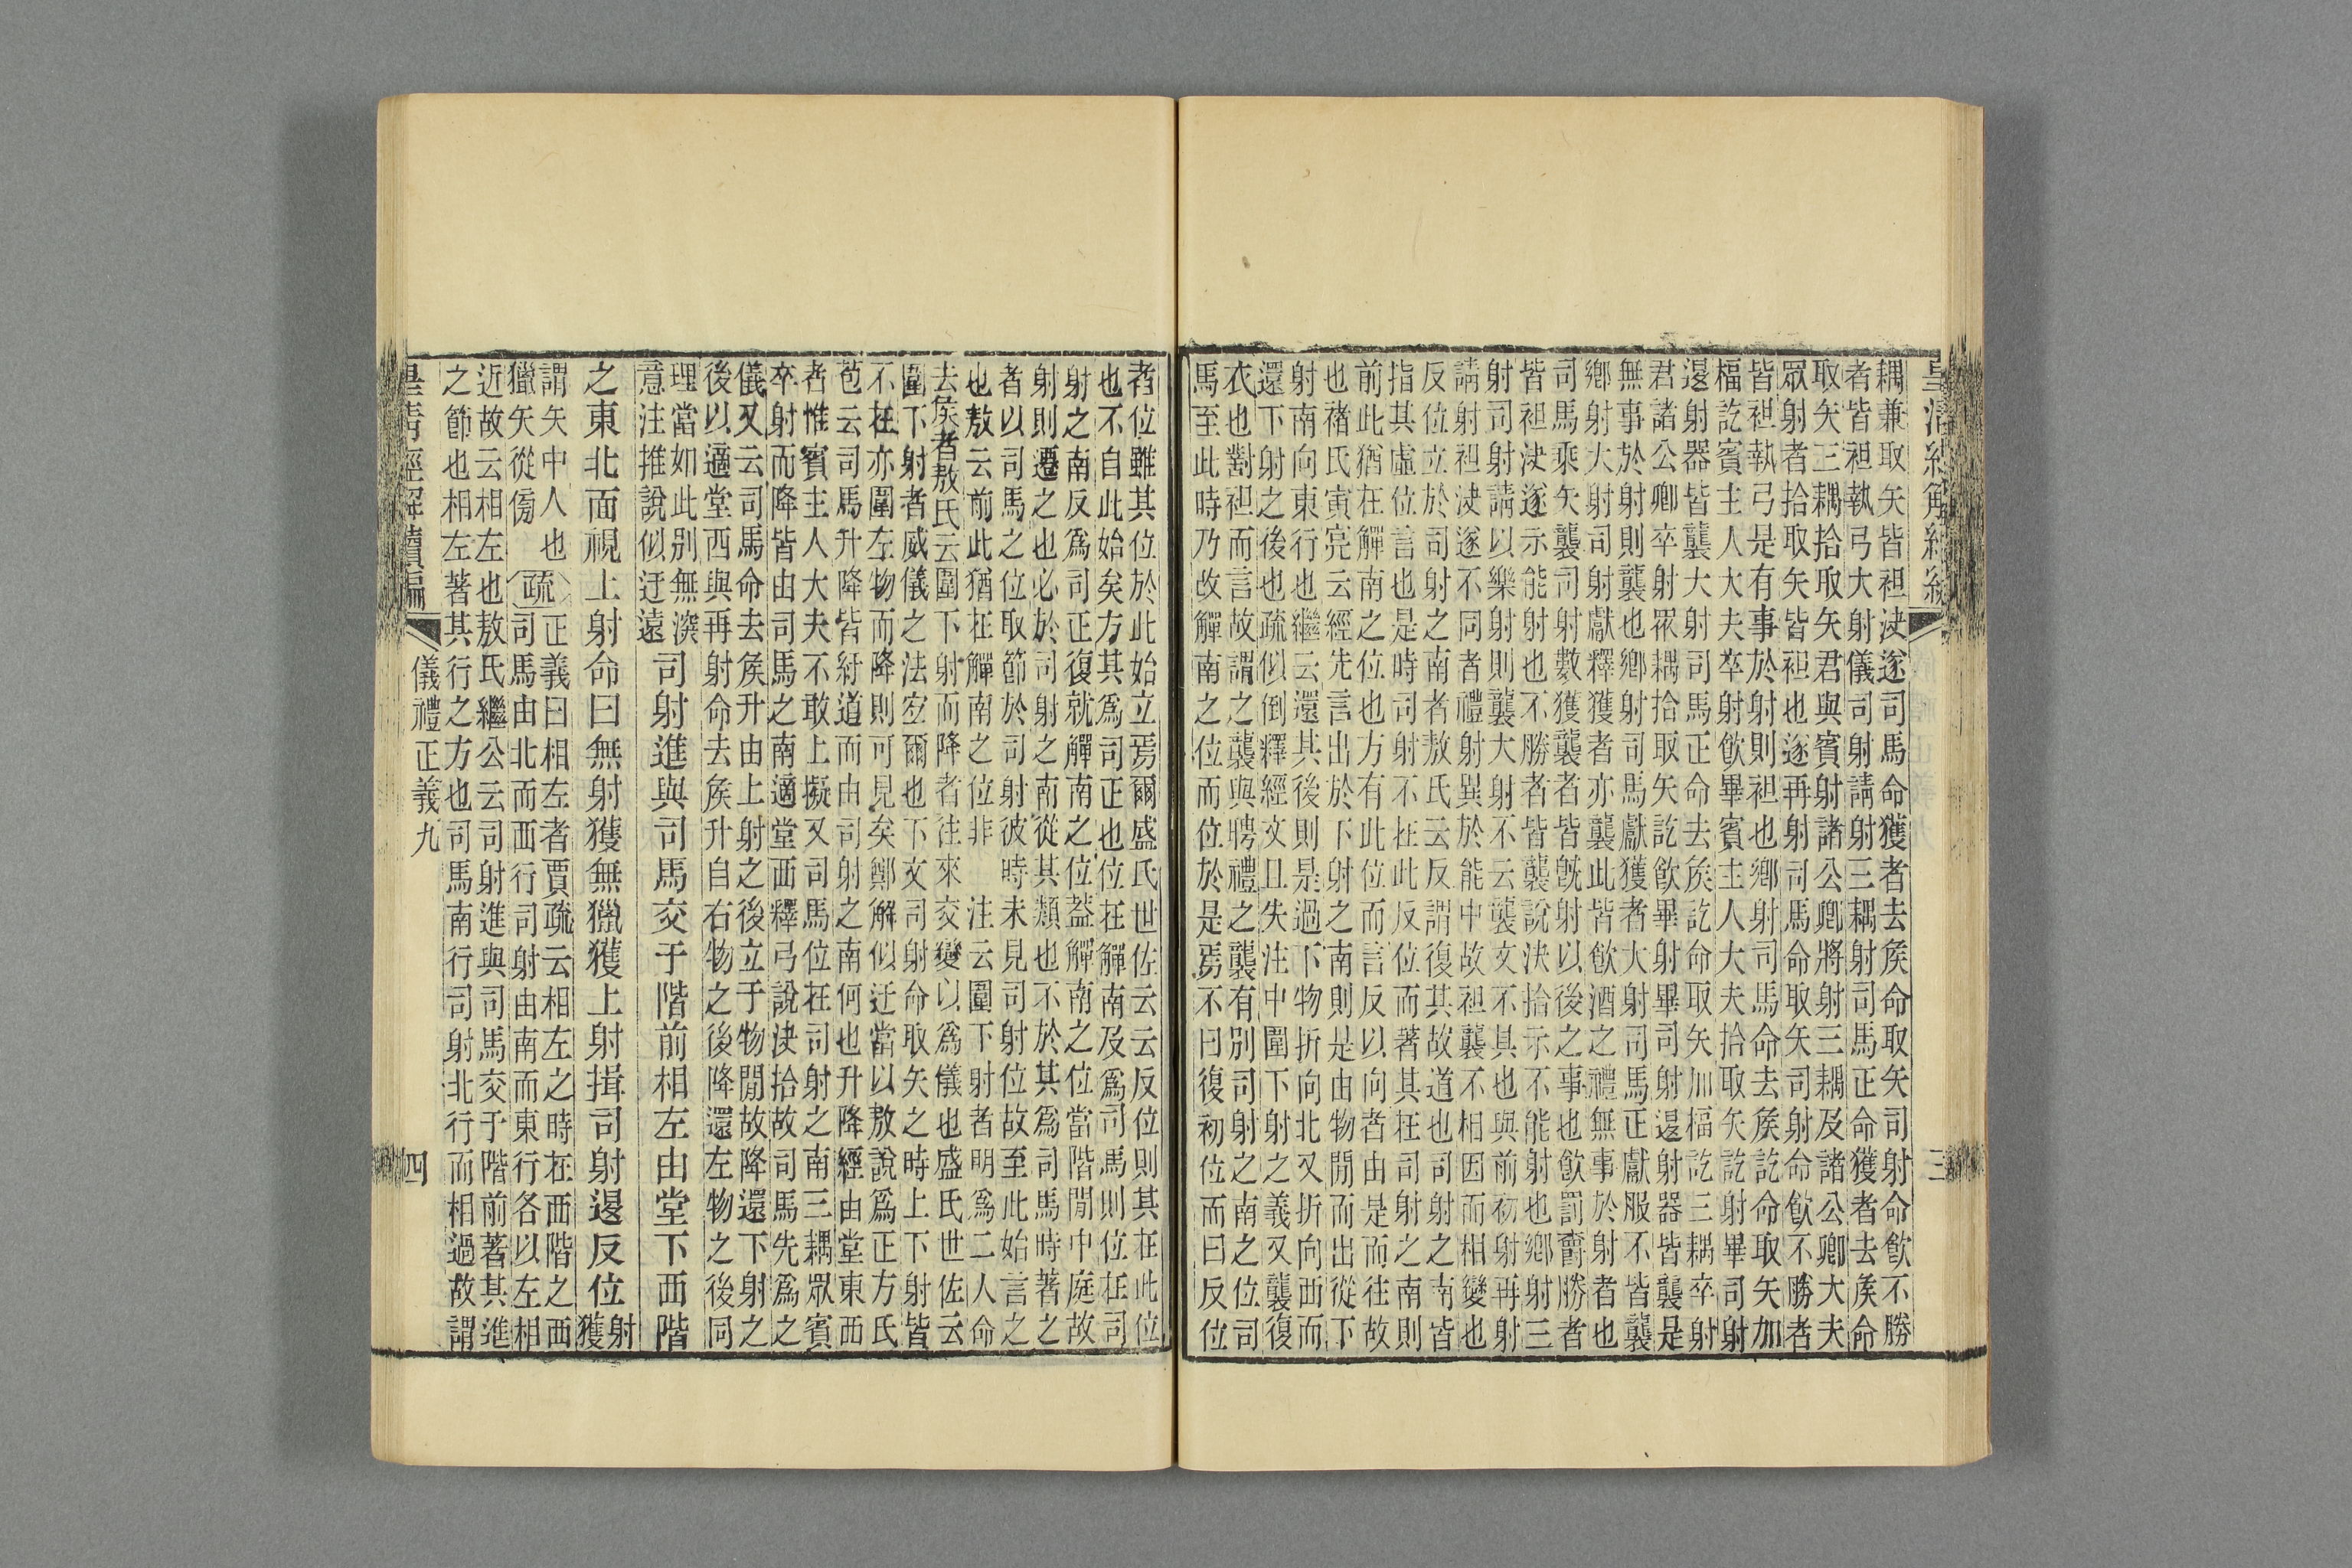 耦兼取矢皆袒決遂司馬命獲者去矦命取矢司射命飮不勝
者皆袒執弓大射儀司射請射三耦射司馬正命獲者去矦命
取矢三耦拾取矢君與賓射諸公卿將射三耦及諸公卿大夫
眾射者拾取矢皆袒也遂再射司馬命取矢司射命飮不勝者
皆袒執弓是有事於射則袒也鄉射司馬命去矦訖命取矢加
楅訖賓主人大夫卒射飮畢賓主人大夫拾取矢訖射畢司射
遏射器皆襲大射司馬正命去矦訖命取矢加楅訖三耦卒射
君諸公卿卒射眾耦拾取矢訖飮畢射畢司射遏射器皆襲是
無事於射則襲也鄉射司馬獻獲者大射司馬正獻服不皆襲
鄉射大射司射獻釋獲者亦襲此皆飮酒之禮無事於射者也
司馬乘矢襲司射數獲襲者皆旣射以後之事也飮罰爵勝者
皆袒決遂示能射也不勝者皆襲說決拾示不能射也鄉射三
射司射請以樂射則襲大射不云襲文不具也與前初射再射
請射袒決遂不同者禮射異於能中故袒襲不相因而相變也
反位立於司射之南者敖氏云反謂復其故道也司射之南皆
指其虛位言也是時司射不在此反位而著其在司射之南則
前此猶在觶南之位也方有此位而言反以向者由是而往故
也褚氏寅亮云經先言出於下射之南則是由物閒而出從下
射南向東行也繼云還其後則是過下物折向北又折向西而
還下射之後也疏似倒釋經文且失注中圍下射之義又襲復
衣也對袒而言故謂之襲與聘禮之襲襲有別司射之南之位司
馬至此時乃改觶南之位而位於是焉不曰復初位而曰反位
三
者位雖其位於此始立焉爾盛氏世佐云云反位則其在此位
也不自此始矣方其爲司正也位在觶南及爲司馬則位在司
射之南反爲司正復就觶南之位葢觶南之位當階閒中庭故
射則遷之也必於司射之南從其類也不於其爲司馬時著之
者以司馬之位取節於司射彼時未見司射位故至此始言之
也敖云前此猶在觶南之位非 注云圍下射者明爲二人命
去矦者敖氏云圍下射而降者往來交變以爲儀也盛氏世佐云
圍下射者威儀之法空爾也下文司射命取矢之時上下射皆
不在亦圍左物而降則可見矣鄭解似迂當以敖說爲正方氏
苞云司馬升降皆紆道而由司射之南何也升降經由堂東西
者惟賓主人大夫不敢上擬又司馬位在司射之南三耦眾賓
卒射而降皆由司馬之南適堂西釋弓說決拾故司馬先爲之
儀又云司馬命去矦升由上射之後立于物閒故降還下射之
後以適堂西與再射命去矦升自右物之後降還左物之後同
理當如此別無深
意注推說似迂遠 司射進與司馬交于階前相左由堂下西階
之東北面視上射命曰無射獲無獵獲上射揖司射遏反位射獲
謂矢中人也
獵矢從傍 疏正義曰相左者賈疏云相左之時在西階之西
司馬由北而西行司射由南而東行各以左相
近故云相左也敖氏繼公云司射進與司馬交于階前著其進
之節也相左著其行之方也司馬南行司射北行而相過故謂
皇淸經解續編
儀禮正義九
四